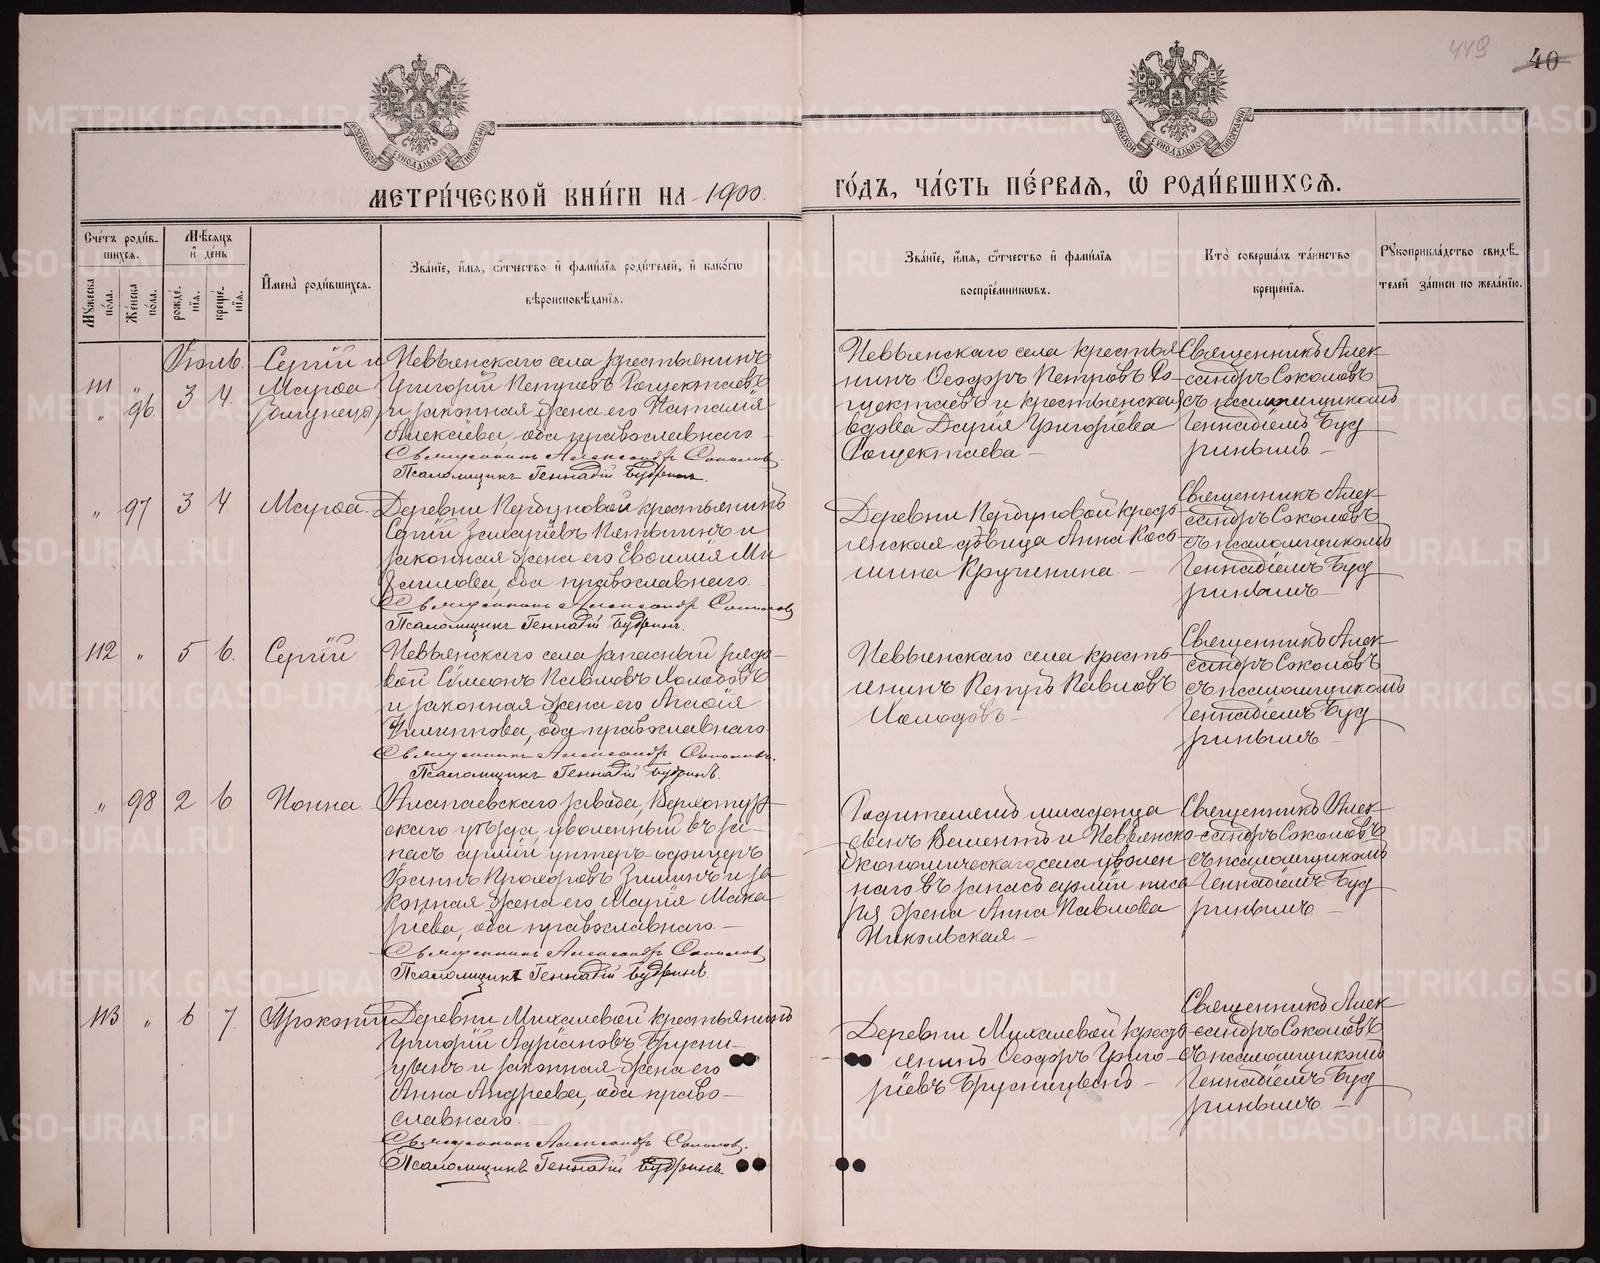 449
40
МЕТРИ́ЧЕСКОЙ КНИ́ГИ НА 1900.
ГО́ДЪ, ЧА́СТЬ ПЕ́РВАЯ, Ѽ РОДИ́ВШИХСЯ.
Сче́тъ роди́в-
шихся.
Мꙋ́жеска по́ла.
Же́нска по́ла.
Мѣ́сяцъ и҆ де́нь
рожде́-нія.
креще́-нія.
И҆мена̀ роди́вшихся.
Зва́ніе, и҆́мя, ѻ҆́тчество и҆ фами́лія роди́телей, и҆ како́гѡ
вѣроисповѣ́данія.
Зва́ніе, и҆́мя, ѻ҆́тчество и҆ фами́лія
воспріе́мникѡвъ.
Кто̀ соверша́лъ та́инство
креще́нія.
Рꙋкоприкла́дство свидѣ́-
телей за́писи по жела́нію.
Іюль.
111 „
„ 96.
3 4.
Сергій и
Марѳа
(близнецы)
Невьянскаго села крестьянинъ
Григорій Петровъ Рощектаевъ
и законная жена его Наталія
Алексіева, оба православнаго
Священникъ Александръ Соколовъ
Псаломщикъ Геннадій Будринъ.
Невьянскаго села крестья-
нинъ Ѳеодоръ Петровъ Ро-
щектаевъ и крестьянская
вдова Дарія Григоріева
Рощектаева
Священникъ Алек-
сандръ Соколовъ
съ псаломщикомъ
Геннадіемъ Буд-
ринымъ
„ 97 3 4.
Марѳа.
Деревни Кордюковой крестьянинъ
Сергій Захаріевъ и
законная жена его Евѳимія Ми-
хаилова, оба православнаго
Священникъ Александръ Соколовъ
Псаломщикъ Геннадій Будринъ.
Деревни Кордюковой кресть-
янская дѣвица Анна Кось-
мина Крутикина.
Священникъ Алек-
сандръ Соколовъ
съ псаломщикомъ
Геннадіемъ Буд-
ринымъ
112 „ 5 6.
Сергій
Невьянскаго села запасный рядо-
вой Сѵмеонъ Павловъ Холодовъ
и законная жена его Агафія
Филиппова, оба православнаго
Священникъ Александръ Соколовъ.
Псаломщикъ Геннадій Будринъ.
Невьянскаго села кресть-
янинъ Петръ Павловъ
Холодовъ
Священникъ Алек-
сандръ Соколовъ
съ псаломщикомъ
Геннадіемъ Буд-
ринымъ
„ 98 2 6
Нонна
Алапаевскаго завода, Верхотур-
скаго уѣзда, уволенный въ за-
пасъ арміи унтеръ-офицеръ
Прохоровъ Зиминъ и за-
конная жена его Марія Мака-
ріева, оба православнаго
Священникъ Александръ Соколовъ
Псаломщикъ Геннадій Будринъ.
младенца
и Невьянско-
экономическаго села уволен-
наго въ запасъ арміи писа-
ря жена Анна Павлова
Никольская
Священникъ Алек-
сандръ Соколовъ
съ псаломщикомъ
Геннадіемъ Буд-
ринымъ
113 „ 6 7.
Прокопій
Деревни Михалевой крестьянинъ
Григорій Адріановъ Брусни-
цынъ и законная жена его
Анна Андреева, оба право-
славнаго.
Священникъ Александръ Соколовъ.
Псаломщикъ Геннадій Будринъ.
Деревни Михалевой кресть-
янинъ Ѳеодоръ Григо-
ріевъ Брусницынъ
Священникъ Алек-
сандръ Соколовъ
съ псаломщикомъ
Геннадіемъ Буд-
ринымъ
METRIKI.GASO-URAL.RU